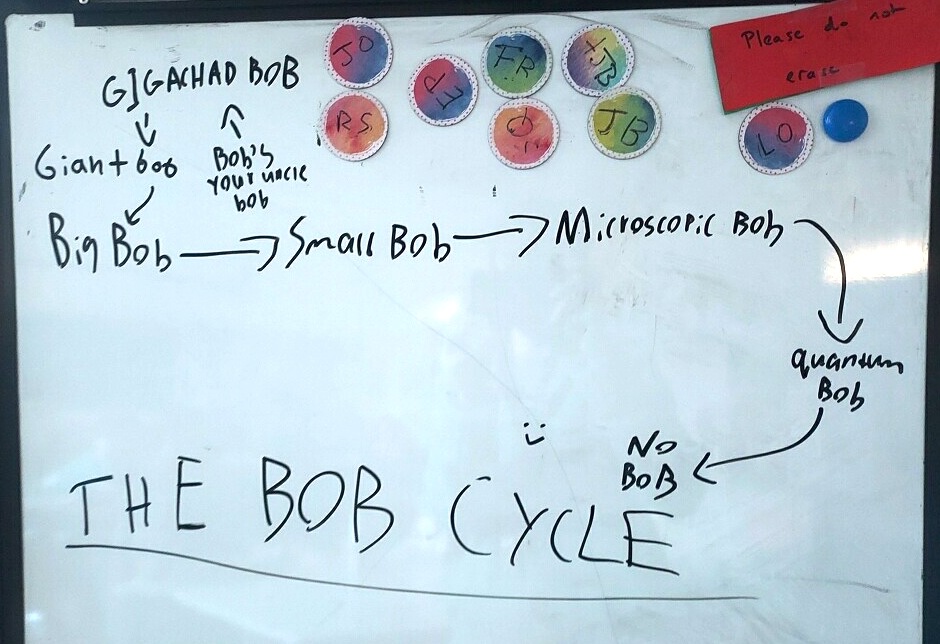 Please do not
erase
JO
FR
+JB
RS
JB
LO
GIGACHAD BOB
Giant bob
Bob's
your uncle
bob
Big Bob
Small Bob
Microscopic Bob
quantum
Bob
No
BoB
:)
THE BOB CYCLE